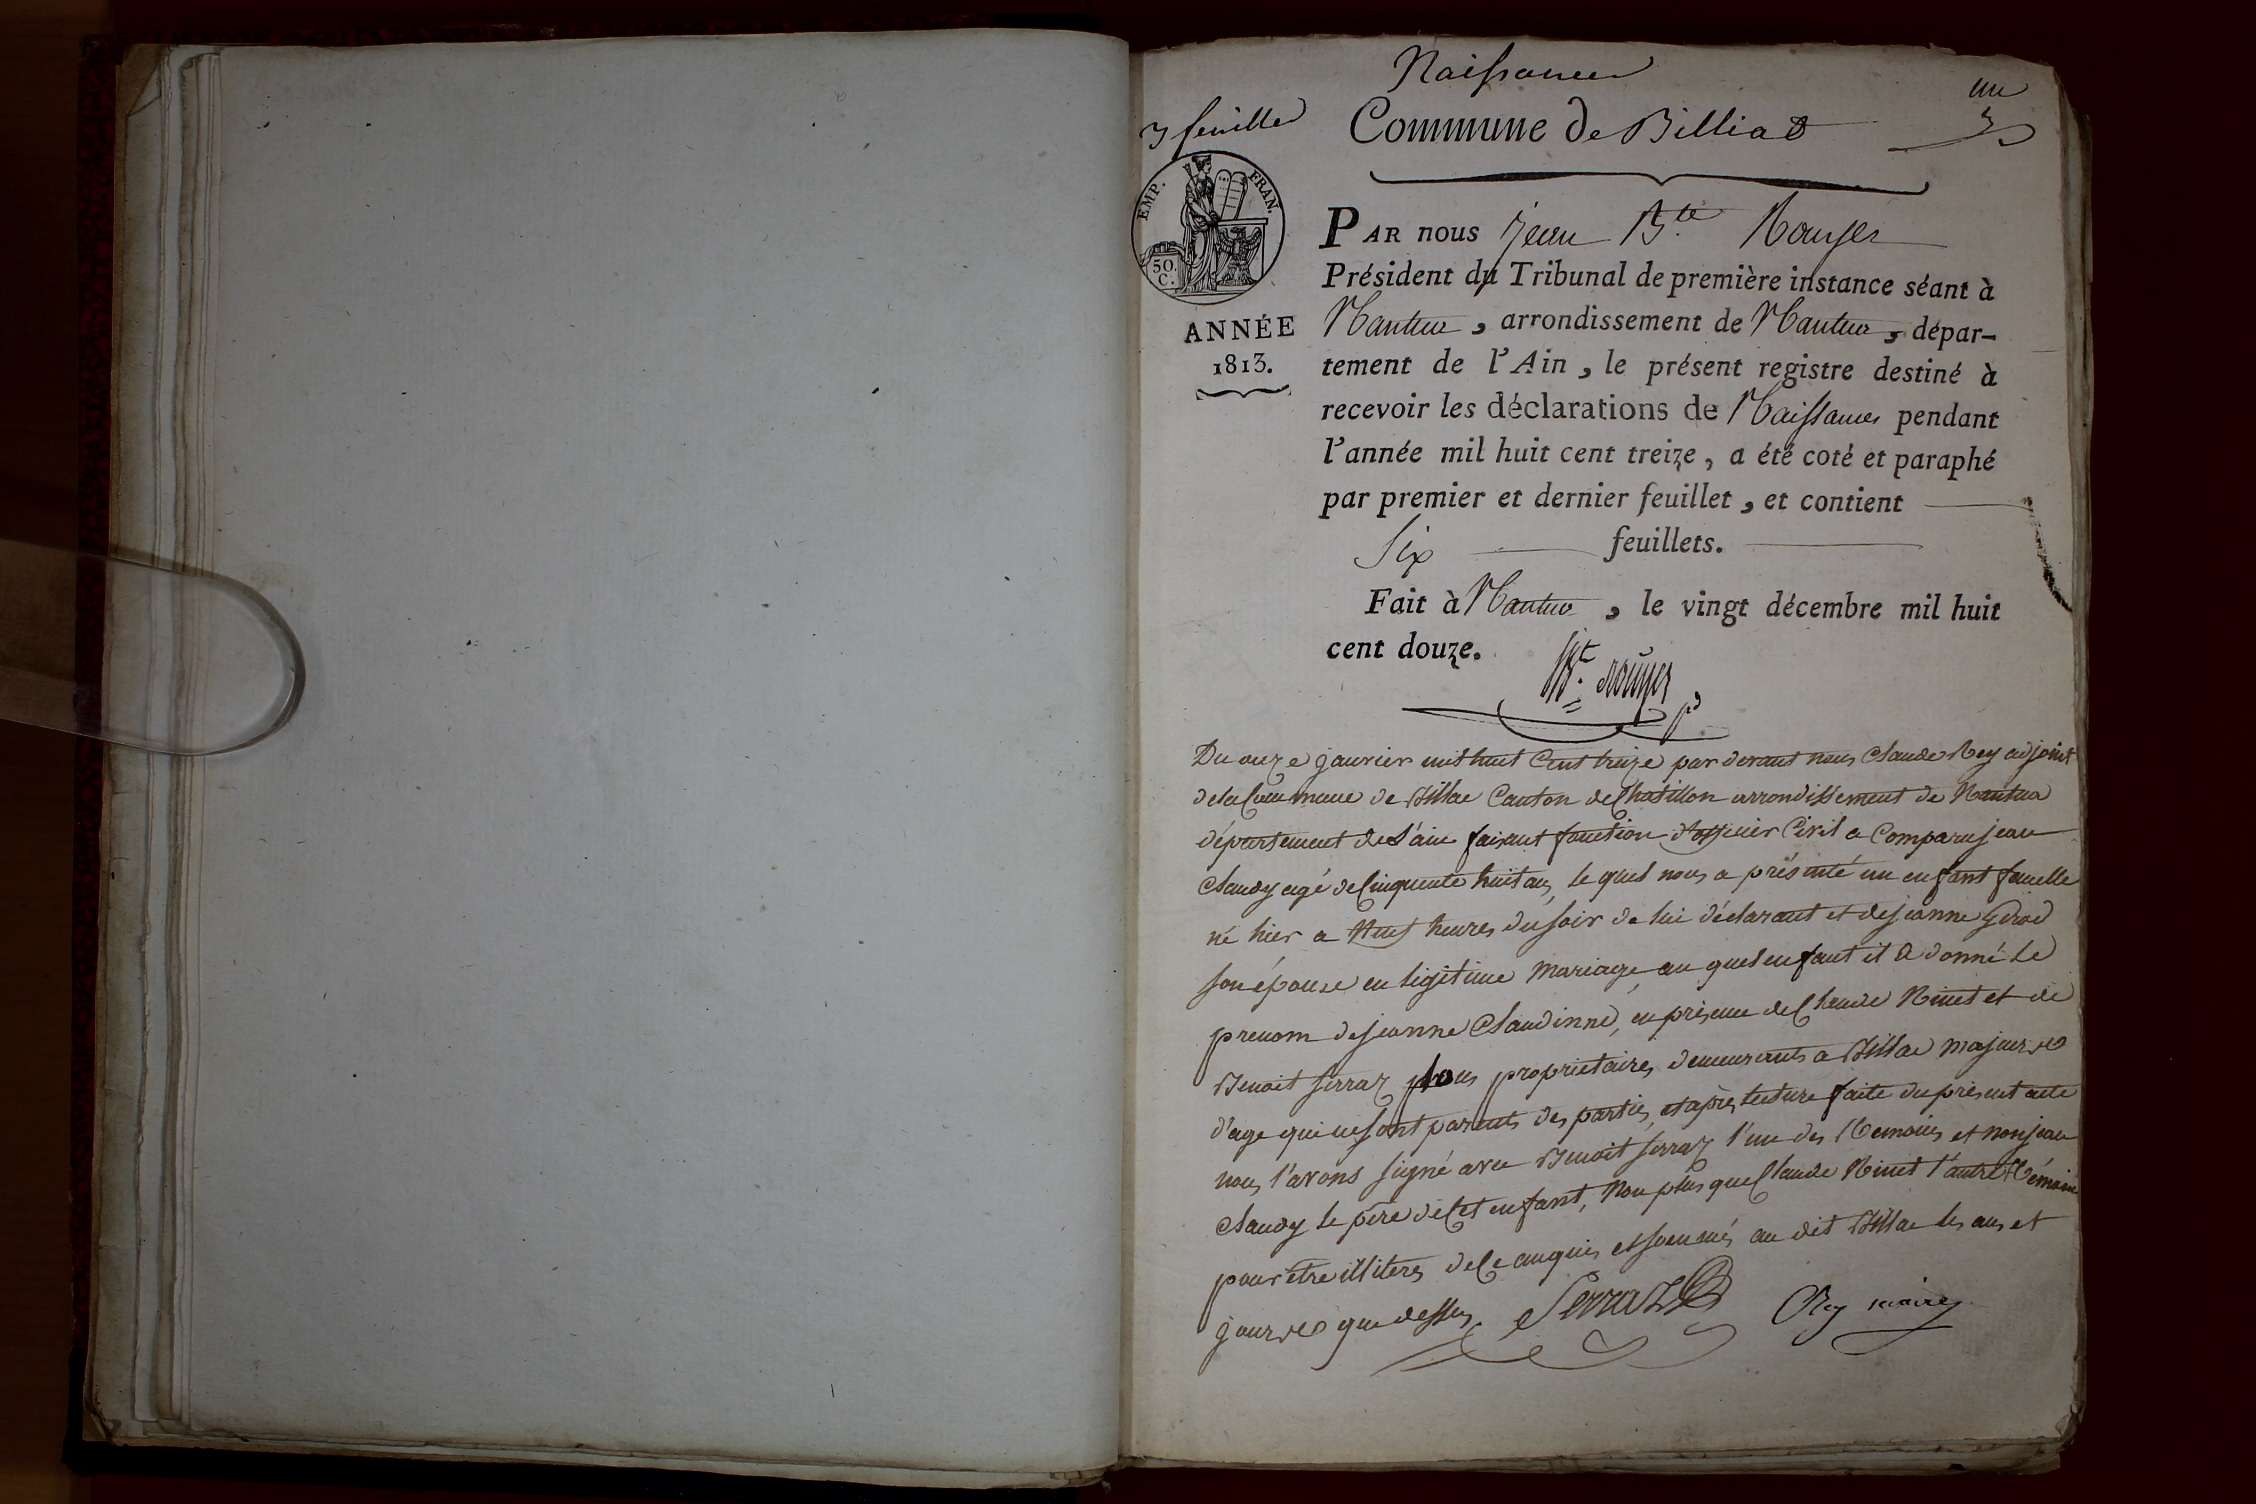 Naissances
un
3 feuilles
Commune de Billiat
EMP. FRAN.
50. C.
ANNÉE
1813.
PAR nous Jean Bte Rouyer
Président du Tribunal de première instance séant à
Nantua, arrondissement de Nantua, dépar-
tement de l'Ain, le présent registre destiné à
recevoir les déclarations de Naissances pendant
l'année mil huit cent treize, a été coté et paraphé
par premier et dernier feuillet, et contient
Six feuillets.
Fait à Nantua, le vingt décembre mil huit
cent douze.
Bt. rouyer
pd
Du onze janvier mil huit Cent treize par devant nous Claude Rey adjoint
de la Commune de Billac Canton de Chatillon arrondissement de Nantua
département de L'ain faisant fonction d'officier Civil a Comparu jean
Claudy agé de Cinquante huit ans, le quel nous a présenté un enfant femelle
né hier a Neuf heures du soir de lui déclarant et de jeanne
son épouse en légitime Mariage, au quel enfant il a donné le
prenom de jeanne Claudinne, en présence de Claude Rinet et de
Benoit serraz tous propriétaires, demeurants a Billac majeurs
d'age qui ne sont parents des parties, et après lecture faite du présent acte
nous l'avons signé avec Benoit serraz l'un des témoins et non jean
Claudy le père de Cet enfant, Non plus que Claude Rinet l'autre témoin
pour être illiteres de ce enquis et sommés au dit Billac les ans et
jours que dessus
Serraz Rey maire